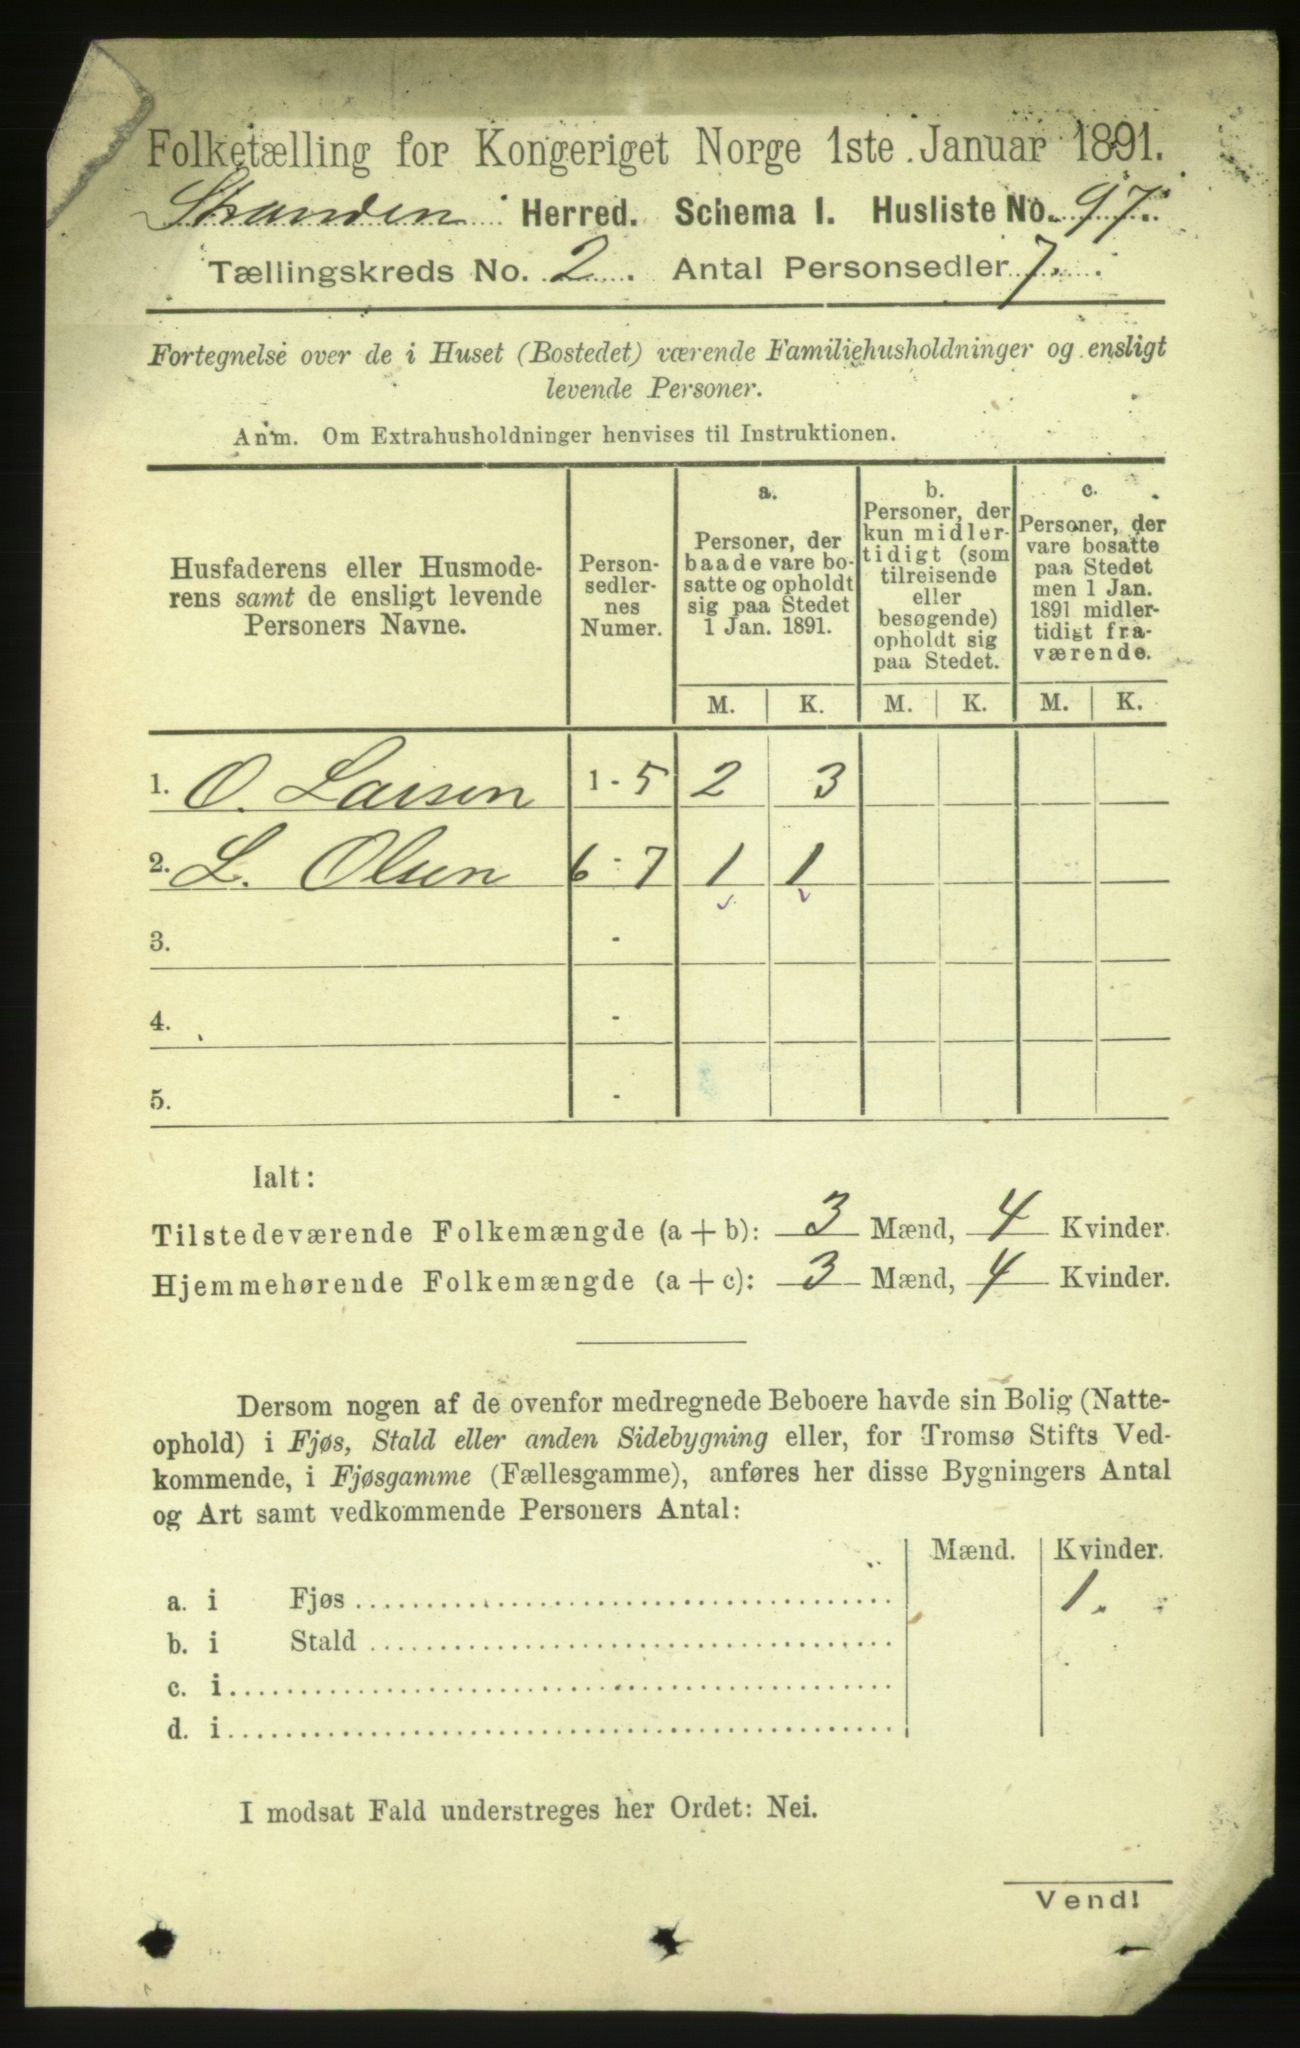 Folketælling for Kongeriget Norge 1ste Januar 1891.
Stranden Herred. Schema I. Husliste No. 97.
Tællingskreds No. 2. Antal Personsedler 7.
Fortegnelse over de i Huset (Bostedet) værende Familiehusholdninger og ensligt
levende Personer.
Anm. Om Extrahusholdninger henvises til Instruktionen.
Husfaderens eller Husmode-
rens samt de ensligt levende
Personers Navne.
Person-
sedler-
nes
Numer.
a.
Personer, der
baade vare bo-
satte og opholdt
sig paa Stedet
1 Jan. 1891.
b.
Personer, der
kun midler-
tidigt (som
tilreisende
eller
besøgende)
opholdt sig
paa Stedet.
c.
Personer, der
vare bosatte
paa Stedet
men 1 Jan.
1891 midler-
tidigt fra-
værende.
M. K. M. K. M. K.
1. O. Larsen 1 - 5 2 3
2. L. Olsen 6 - 7 1 1
3. -
4. -
5. -
Ialt:
Tilstedeværende Folkemængde (a + b): 3 Mænd, 4 Kvinder.
Hjemmehørende Folkemængde (a + c): 3 Mænd, 4 Kvinder.
Dersom nogen af de ovenfor medregnede Beboere havde sin Bolig (Natte-
ophold) i Fjøs, Stald eller anden Sidebygning eller, for Tromsø Stifts Ved-
kommende, i Fjøsgamme (Fællesgamme), anføres her disse Bygningers Antal
og Art samt vedkommende Personers Antal:
Mænd. Kvinder.
a. i Fjøs 1.
b. i Stald
c. i
d. i
I modsat Fald understreges her Ordet: Nei.
Vend!